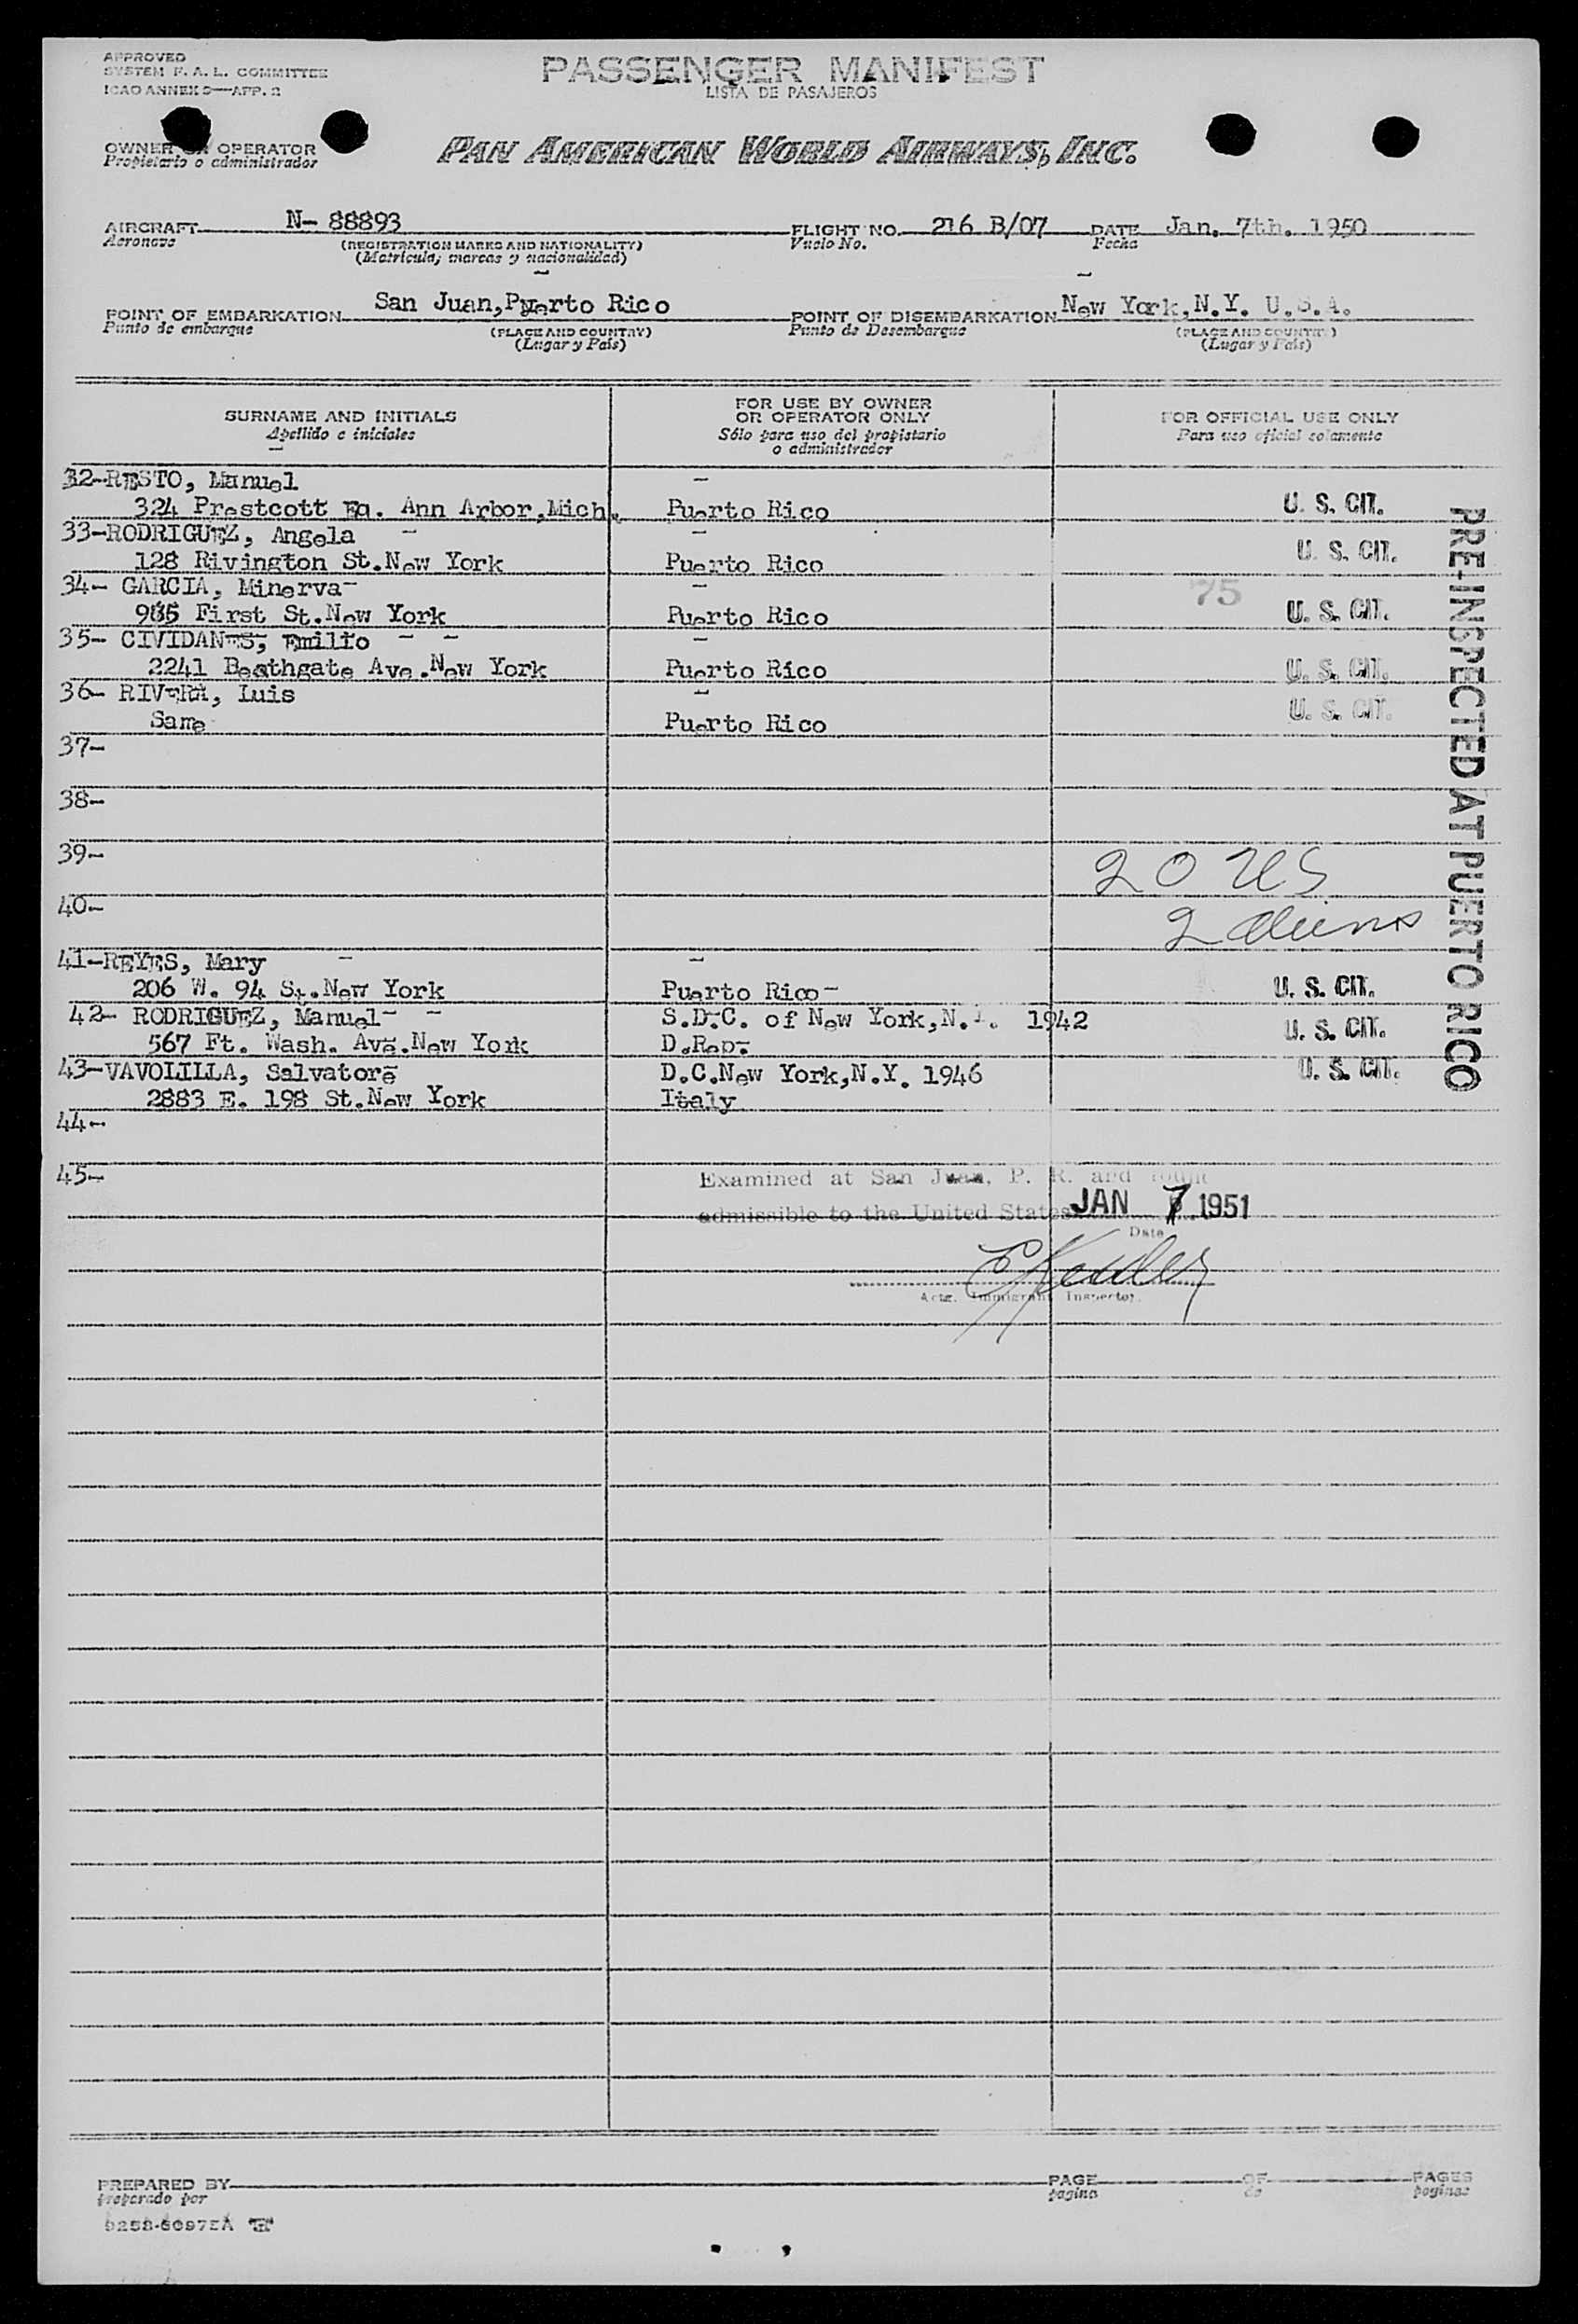 APPROVED
SYSTEM F. A. L. COMMITTEE
ICAO ANNEX 9—APP. 2
PASSENGER MANIFEST
LISTA DE PASAJEROS
OWNER OR OPERATOR
Propietario o administrador
PAN AMERICAN WORLD AIRWAYS, INC.
AIRCRAFT N- 88893 FLIGHT NO. 216 B/07 DATE Jan. 7th. 1950
Aeronave (REGISTRATION MARKS AND NATIONALITY) Vuelo No. Fecha
(Matrícula; marcas y nacionalidad)
POINT OF EMBARKATION San Juan,Puerto Rico POINT OF DISEMBARKATION New York,N.Y. U.S.A.
Punto de embarque (PLACE AND COUNTRY) Punto de Desembarque (PLACE AND COUNTRY)
(Lugar y País) (Lugar y País)
SURNAME AND INITIALS FOR USE BY OWNER OR OPERATOR ONLY FOR OFFICIAL USE ONLY
Apellido e iniciales Sólo para uso del propietario o administrador Para uso oficial solamente
32-RESTO, Manuel
324 Prestcott Ea. Ann Arbor,Mich. Puerto Rico U. S. CIT.
33-RODRIGUEZ, Angela
128 Rivington St.New York Puerto Rico U. S. CIT.
34- GARCIA, Minerva 75
985 First St.New York Puerto Rico U. S. CIT.
35- CIVIDANES, Emilio
2241 Beathgate Ave.New York Puerto Rico U. S. CIT.
36- RIVERA, Luis
Same Puerto Rico U. S. CIT.
37-
38-
39- 20 US
40- 2 aliens
41-REYES, Mary
206 W. 94 St.New York Puerto Rico U. S. CIT.
42- RODRIGUEZ, Manuel S.D.C. of New York,N.Y. 1942
567 Ft. Wash. Ave.New York D.Rep. U. S. CIT.
43-VAVOLILLA, Salvatore D.C.New York,N.Y. 1946 U. S. CIT.
2883 E. 198 St.New York Italy
44-
45-
PRE-INSPECTED AT PUERTO RICO
Examined at San Juan, P. R. and found
admissible to the United States JAN 7 1951
Date
Actg. Immigrant Inspector.
PREPARED BY PAGE OF PAGES
preparado por pagina de paginas